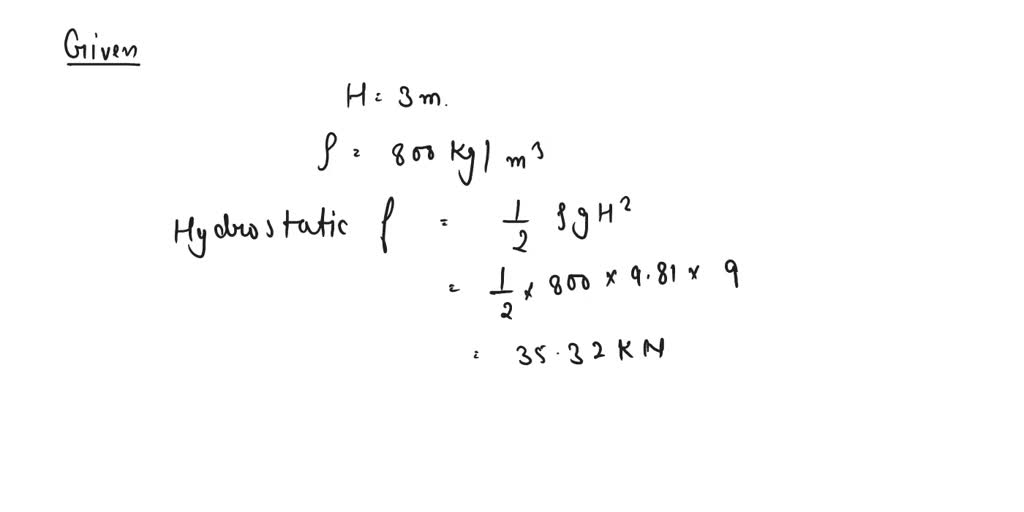 Given
H = 3m.
ρ = 800 Kg/m³
Hydrostatic f = 1/2 ρgH²
= 1/2 × 800 × 9.81 × 9
= 35.32 KN